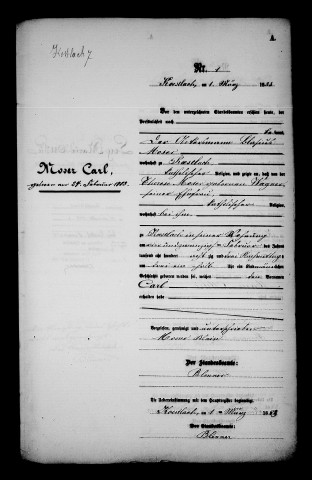 Kostlach 7
A.
Nr. 1
Kostlach, am 1. März 1883.
Vor dem unterzeichneten Standesbeamten erschien heute, der
Persönlichkeit nach
kannt,
Der Ackersmann Blasius
Moser
wohnhaft zu Kostlach
katholischer Religion, und zeigte an, daß von der
Therese Moser geborenen Wagner,
seiner Ehefrau
katholischer Religion,
wohnhaft bei ihm
zu Kostlach in seiner Wohnung
am vier und zwanzigsten Februar des Jahres
tausend acht hundert achtzig und drei Nachmittags
um drei Uhr ein Kind männlichen
Geschlecht geboren sei, welches den Vornamen
Carl
erhalten habe
Moser Carl,
geboren am 24. Februar 1883.
Vorgelesen, genehmigt und unterschrieben
Moser Blasius
Der Standesbeamte.
Blenner
Die Uebereinstimmung mit dem Hauptregister beglaubigt
Kostlach, am 1. März 1883
Der Standesbeamte.
Blenner